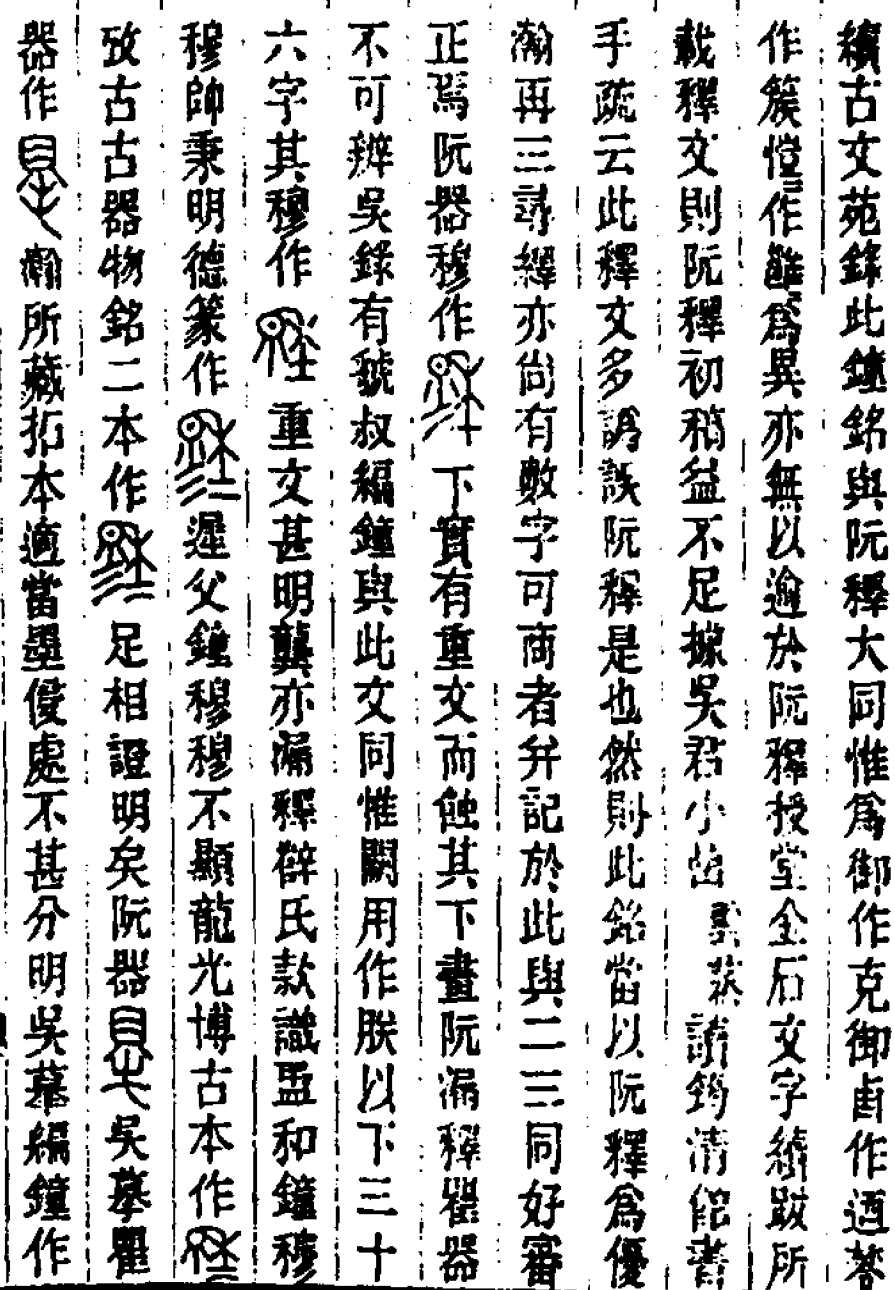 續古文苑錄此鐘銘與阮釋大同惟爲御作克御卣作迺蒼
作簇愷作雝爲異亦無以逾於阮釋授堂金石文字續跋所
載釋文則阮釋初稿益不足據吳君小岩讀筠清館書
手疏云此釋文多譌誤阮釋是也然則此銘當以阮釋爲優
瀚再三尋繹亦尚有數字可商者弁記於此與二三同好審
正焉阮器穆作下實有重文而蝕其下畫阮漏釋瞿器
不可辨吳錄有虢叔編鐘與此文同惟闕用作朕以下三十
六字其穆作重文甚明龔亦漏釋薛氏款識盄和鐘穆
穆帥秉明德篆作遲父鐘穆穆不顯龍光博古本作
攷古古器物銘二本作足相證明矣阮器吳摹瞿
器作瀚所藏拓本適當墨侵處不甚分明吳摹編鐘作